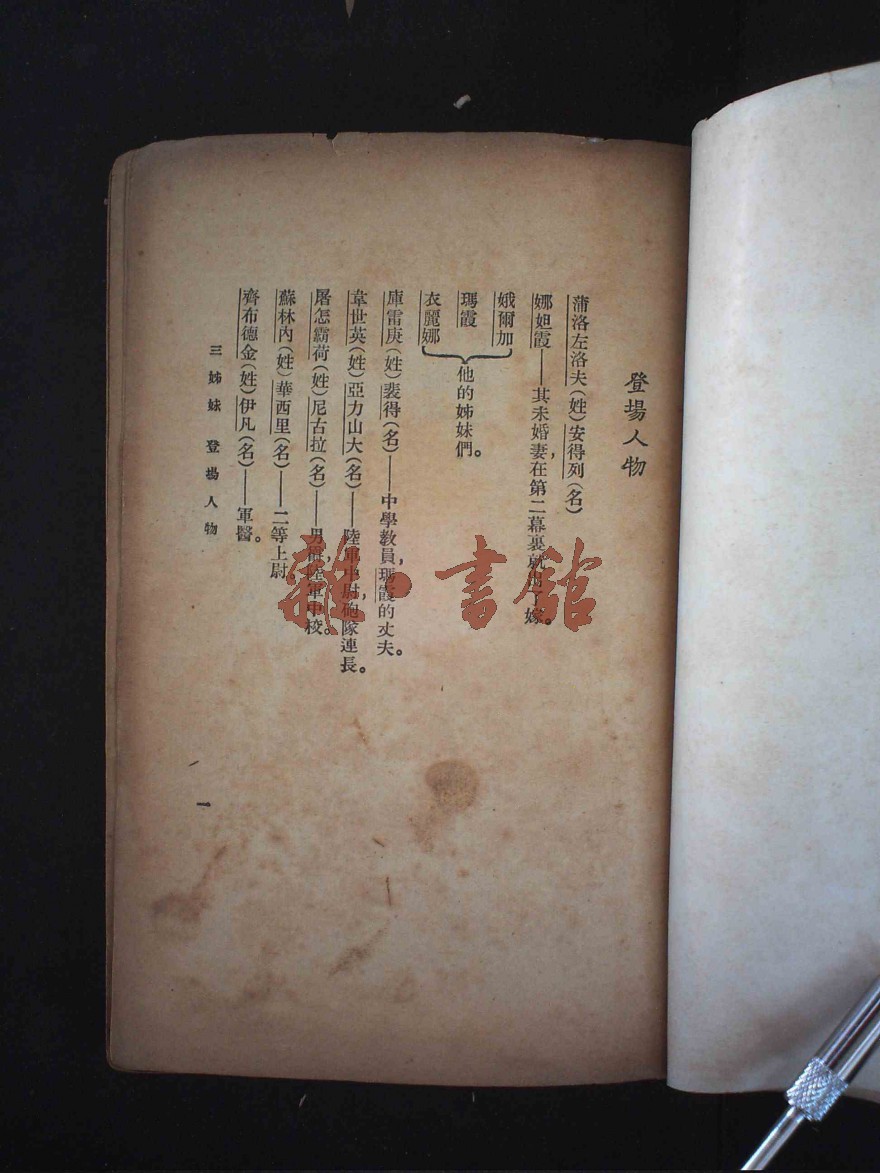 登場人物
蒲洛左洛夫(姓)安得列(名)
娜妲霞——其未婚妻,在第二幕裏就出了嫁。
娥爾加
瑪霞
衣麗娜
他的姊妹們。
庫雷庚(姓)裴得(名)——中學敎員,瑪霞的丈夫。
韋世英(姓)亞力山大(名)——陸軍中尉,砲隊連長。
屠怎霸荷(姓)尼古拉(名)——男爵,陸軍中校。
蘇林內(姓)華西里(名)——二等上尉。
齊布德金(姓)伊凡(名)——軍醫。
三姊妹 登場人物
一
雜·書館